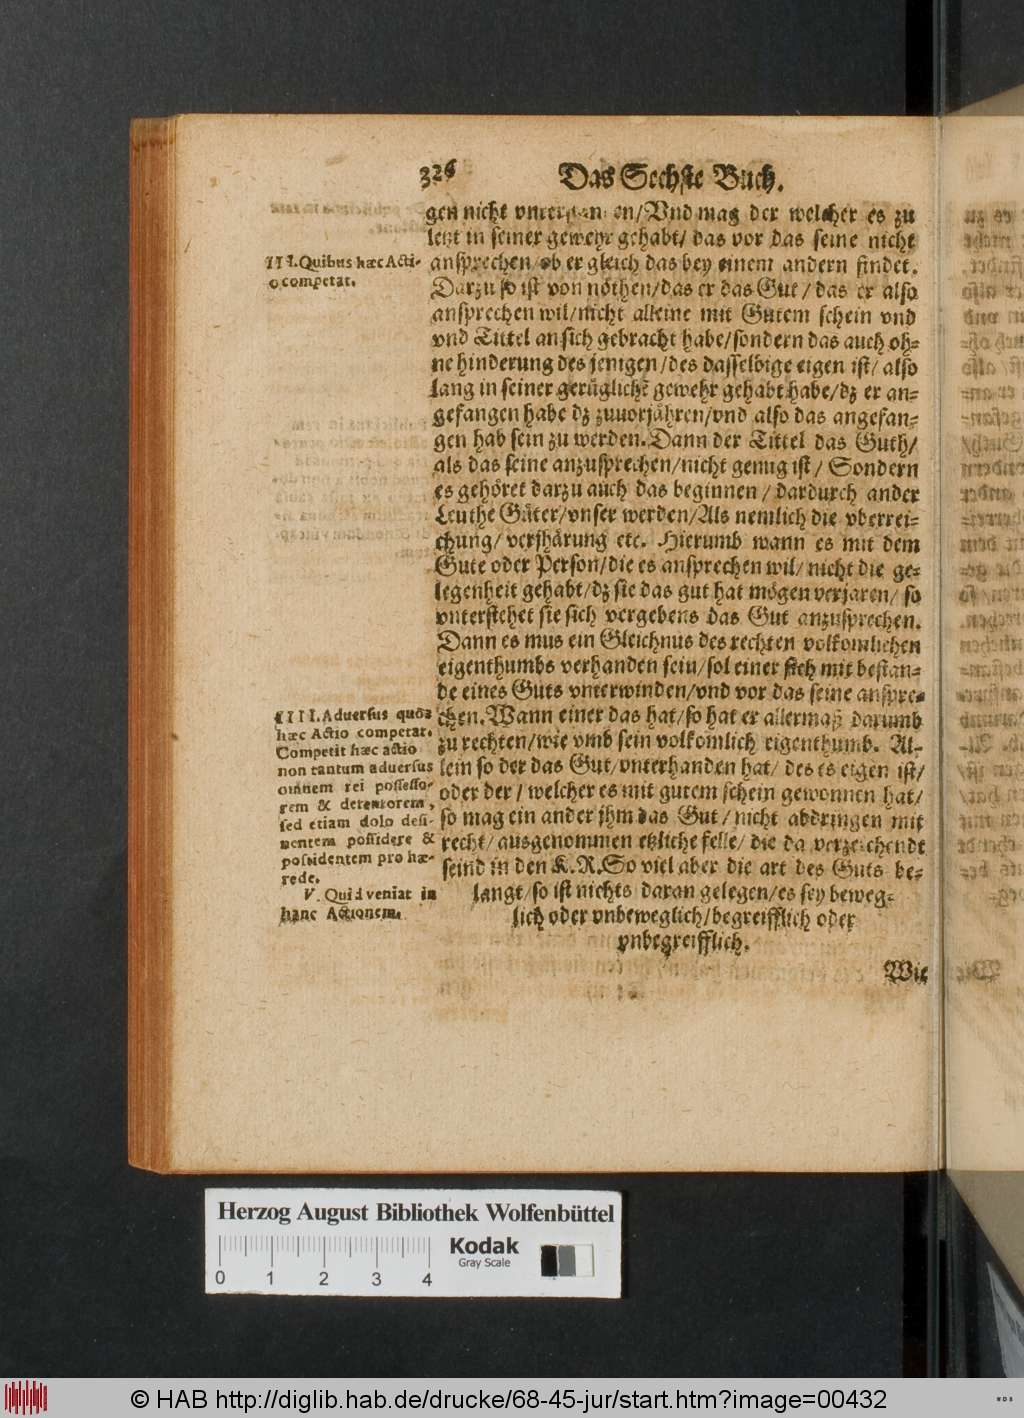 326 Das Sechste Buch.
gen nicht vnterstanden/Vnd mag der welcher es zu
letzt in seiner gewehr gehabt/ das vor das seine nicht
ansprechen/ ob er gleich das bey einem andern findet.
Darzu so ist von nöthen/das er das Gut/ das er also
ansprechen wil/nicht alleine mit Gutem schein vnd
vnd Tittel an sich gebracht habe/sondern das auch oh-
ne hinderung des jenigen/des dasselbige eigen ist/ also
lang in seiner gerüglichē gewehr gehabt habe/dz er an-
gefangen habe dz zuuorjähren/vnd also das angefan-
gen hab sein zu werden. Dann der Tittel das Guth/
als das seine anzusprechen/nicht genug ist/ Sondern
es gehöret darzu auch das beginnen/ dardurch ander
Leuthe Güter/vnser werden/Als nemlich die vberrei-
chung/ verjhärung etc. Hierumb wann es mit dem
Gute oder Person/die es ansprechen wil/ nicht die ge-
legenheit gehabt/dz sie das gut hat mögen verjaren/ so
vnterstehet sie sich vergebens das Gut anzusprechen.
Dann es mus ein Gleichnus des rechten volkomlichen
eigenthumbs verhanden sein/sol einer sich mit bestan-
de eines Guts vnterwinden/vnd vor das seine anspre-
chen. Wann einer das hat/so hat er allermaß darumb
zu rechten/wie vmb sein volkomlich eigenthumb. Al-
lein so der das Gut/vnterhanden hat/ des es eigen ist/
oder der/ welcher es mit gutem schein gewonnen hat/
so mag ein ander jhm das Gut/ nicht abdringen mit
recht/ ausgenommen etzliche felle/ die da verzeichendt
seind in den K.R. So viel aber die art des Guts be-
langt/so ist nichts daran gelegen/es sey beweg-
lich oder vnbeweglich/begreifflich oder
vnbegreifflich.
Wie
III. Quibus hæc Acti-
o competat.
IIII. Aduersus quos
hæc Actio competat.
Competit hæc actio
non tantum aduersus
omnem rei possesso-
rem & detentorem,
sed etiam dolo desi-
nentem possidere &
possidentem pro hæ-
rede.
V. Quid veniat in
hanc Actionem.
Herzog August Bibliothek Wolfenbüttel
Kodak
Gray Scale
0 1 2 3 4
© HAB http://diglib.hab.de/drucke/68-45-jur/start.htm?image=00432